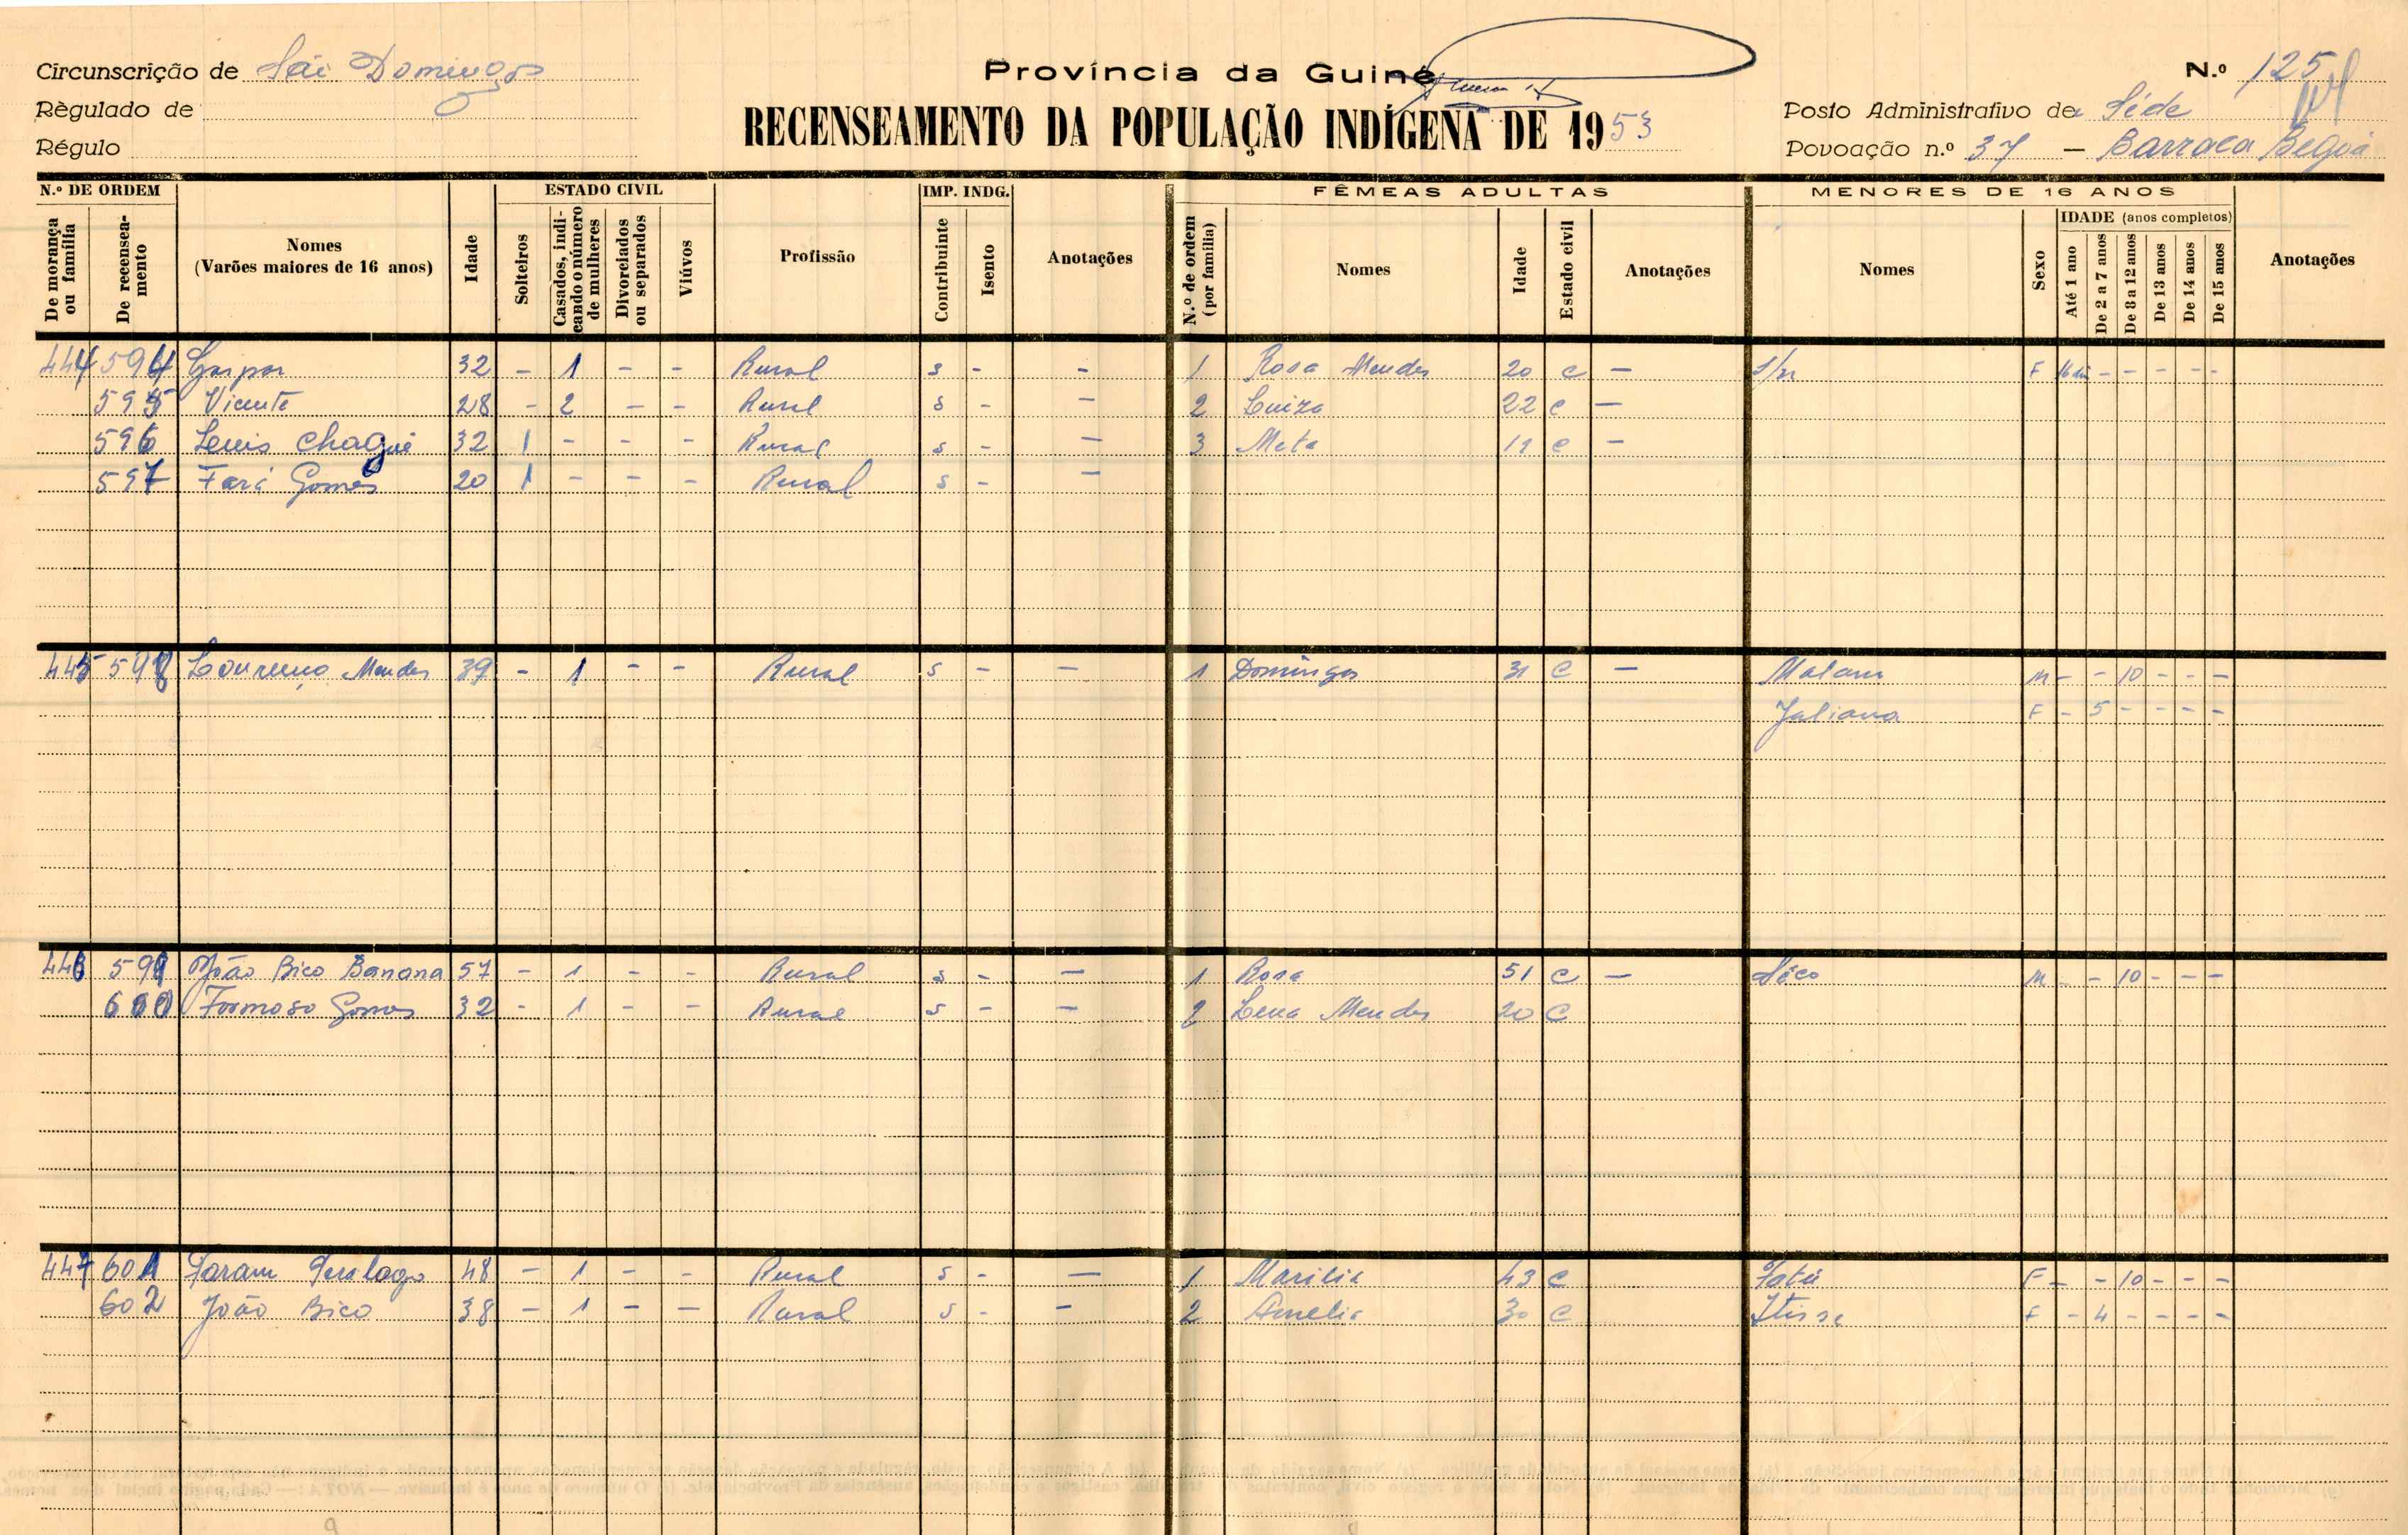 Circunscrição de São Domingos
Règulado de
Régulo
Província da Guiné
RECENSEAMENTO DA POPULAÇÃO INDÍGENA DE 1953
N.º 125
Posto Administrativo de Séde
Povoação n.º 37 — Barraca Begoá
N.º DE ORDEM
De morança ou família
De recenseamento
Nomes (Varões maiores de 16 anos)
Idade
ESTADO CIVIL
Solteiros
Casados, indicando o número de mulheres
Divorciados ou separados
Viúvos
Profissão
IMP. INDG.
Contribuinte
Isento
Anotações
FÊMEAS ADULTAS
N.º de ordem (por família)
Nomes
Idade
Estado civil
Anotações
MENORES DE 16 ANOS
Nomes
Sexo
IDADE (anos completos)
Até 1 ano
De 2 a 7 anos
De 8 a 12 anos
De 13 anos
De 14 anos
De 15 anos
Anotações
444 594 Gaspar 32 - 1 - - Rural s - - 1 Rosa Mendes 20 c - S/n F - - - - -
595 Vicente 28 - 2 - - Rural s - - 2 Luiza 22 c -
596 Luis Chagué 32 1 - - - Rural s - - 3 Meta c -
597 Fará Gomes 20 1 - - - Rural s - -
445 598 Lourenço Mendes 39 - 1 - - Rural s - - 1 Domingas 31 c - Malam M - - 10 - - -
Juliana F - 5 - - - -
446 599 João Bico Banana 57 - 1 - - Rural s - - 1 Rosa 51 c - Séco M - - 10 - - -
600 Formoso Gomes 32 - 1 - - Rural s - - 2 Lena Mendes 20 c
447 601 48 - 1 - - Rural s - - 1 Marilia 43 c Fatú F - - 10 - - -
602 João Bico 38 - 1 - - Rural s - - 2 Amelia 30 c F - 4 - - - -